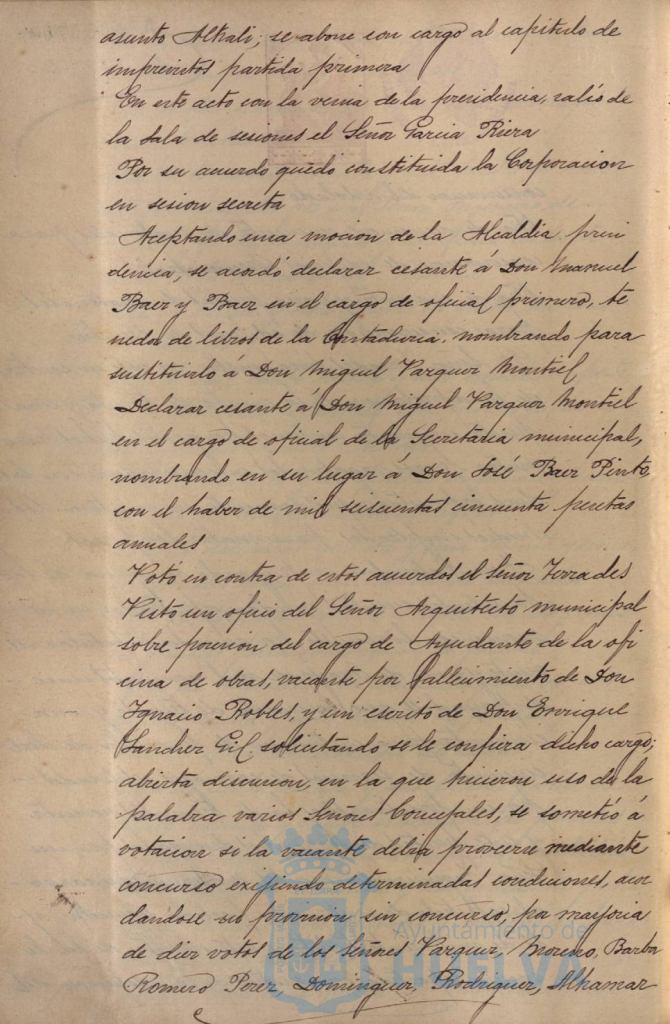 asunto Alkali; se abone con cargo al capitulo de
imprevistos partida primera
En este acto con la venia de la presidencia, salió de
la sala de sesiones el Señor Garcia Riera
Por su acuerdo quedó constituida la Corporacion
en sesion secreta
Aceptando una mocion de la Alcaldia presi
dencia, se acordó declarar cesante á Don Manuel
Baez y Baez en el cargo de oficial primero, te
nedor de libros de la Contaduria, nombrando para
sustituirlo á Don Miguel Vazquez Montiel
Declarar cesante á Don Miguel Vazquez Montiel
en el cargo de oficial de la Secretaria municipal,
nombrando en su lugar á Don José Baez Pinto
con el haber de mil seiscientas cincuenta pesetas
anuales
Votó en contra de estos acuerdos el Señor Terrades
Visto un oficio del Señor Arquitecto municipal
sobre posesion del cargo de Ayudante de la ofi
cina de obras, vacante por fallecimiento de Don
Ignacio Robles, y un escrito de Don Enrique
Sanchez Gil solicitando se le confiera dicho cargo;
abierta discusion, en la que hicieron uso de la
palabra varios Señores Concejales, se sometió á
votacion si la vacante debia proveerse mediante
concurso exigiendo determinadas condiciones, acor
dandose su provision sin concurso, por mayoria
de diez votos de los Señores Vazquez, Moreno, Barba
Romero Perez, Dominguez, Rodriguez, Alhamar
Ayuntamiento de
HUELVA